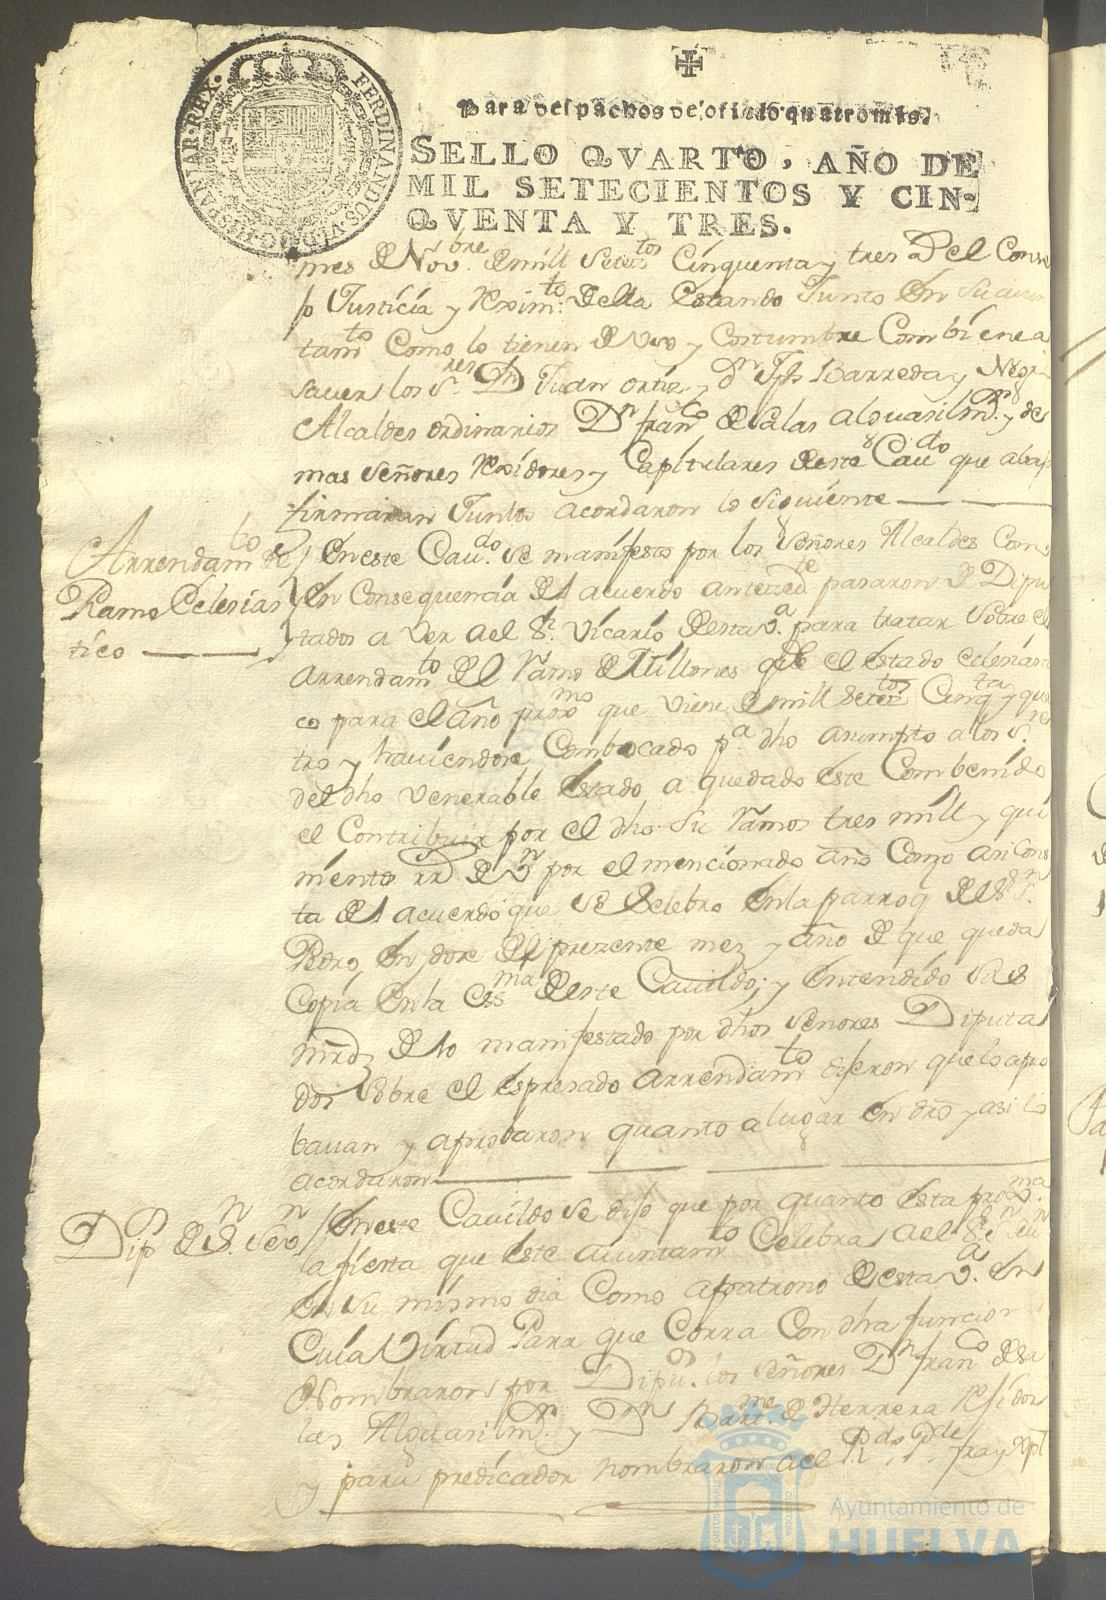 HISPANIAR·REX· FERDINANDUS·VI·D·G·
Para despachos de oficio quatro mrs.
SELLO QVARTO, AÑO DE
MIL SETECIENTOS Y CIN-
QVENTA Y TRES.
mes de Novbre de mill Setetos Cinquenta y tres el Conse
jo Justicia y Reximto della estando Junto en su aiun
tamto Como lo tienen de Uso y Costumbre Combiene a
saver los Sres Dn Juan Ortiz y Dn Jph Barreda y Negr
Alcaldes ordinarios Dn Franco de Salas Alguasil mor y de
mas Señores Rexidores y Capitulares deste Cavdo que abajo
firmaran Juntos acordaron lo Siguiente
Arrendamto de
Ramo Eclesias
tico
En este Cavdo se manifesto por los Señores Alcaldes Como
en Consequencia del acuerdo antezedte pasaron de Dipu
tados a ver a el Sr Vicario desta Va para tratar Sobre el
arrendamto del Ramo de Millones del estado eclesiasti
co para el año proxmo que viene de mill setetos Cinqta y qua
tro y haviendose Combocado pa dho asumpto a los Sres
del dho Venerable estado a quedado este Combenido
el Contribuir por el dho Su Ramo tres mill y qui
nientos rr de Vn por el mencionado año Como asi Cons
ta del acuerdo que se Zelebro en la parroq de Sr Sn
Pedro en dose del prezente mes y año de que queda
Copia en la Essma deste Cavildo; y entendido Sus
mrds de lo manifestado por dhos Señores Diputa
dos sobre el espresado arrendamto dijeron que lo apro
bavan y aprobaron quanto a lugar en dro y asi lo
acordaron
Dipn de Sn Sevn
En este Cavildo se dijo que por quanto esta proxma
la fiesta que este aiuntamto Celebra a el Sr Sn Sevn
en Su mismo dia Como a patrono desta Va en
Cuia Virtud Para que Corra Con dha funcion
Nombraron por Dipu. los Señores Dn Franco de Sa
las Alguasil mr y Dn Barme de Herrera Rejidor
y para predicador nombraron a el Rdo Pde fray Xptl
Ayuntamiento de
HUELVA